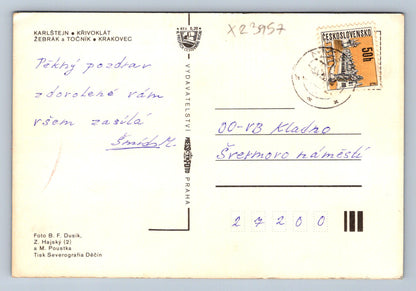 KARLŠTEJN • KŘIVOKLÁT
ŽEBRÁK a TOČNÍK • KRAKOVEC
X23957
ČESKOSLOVENSKO
50h
Pěkný pozdrav
z dovolené vám
všem zasílá
Šmíd K.
VYDAVATELSTVÍ
PRAHA
OO-VB Kladno
Švermovo náměstí
27200
Foto B. F. Dusík,
Z. Hajský (2)
a M. Poustka
Tisk Severografia Děčín